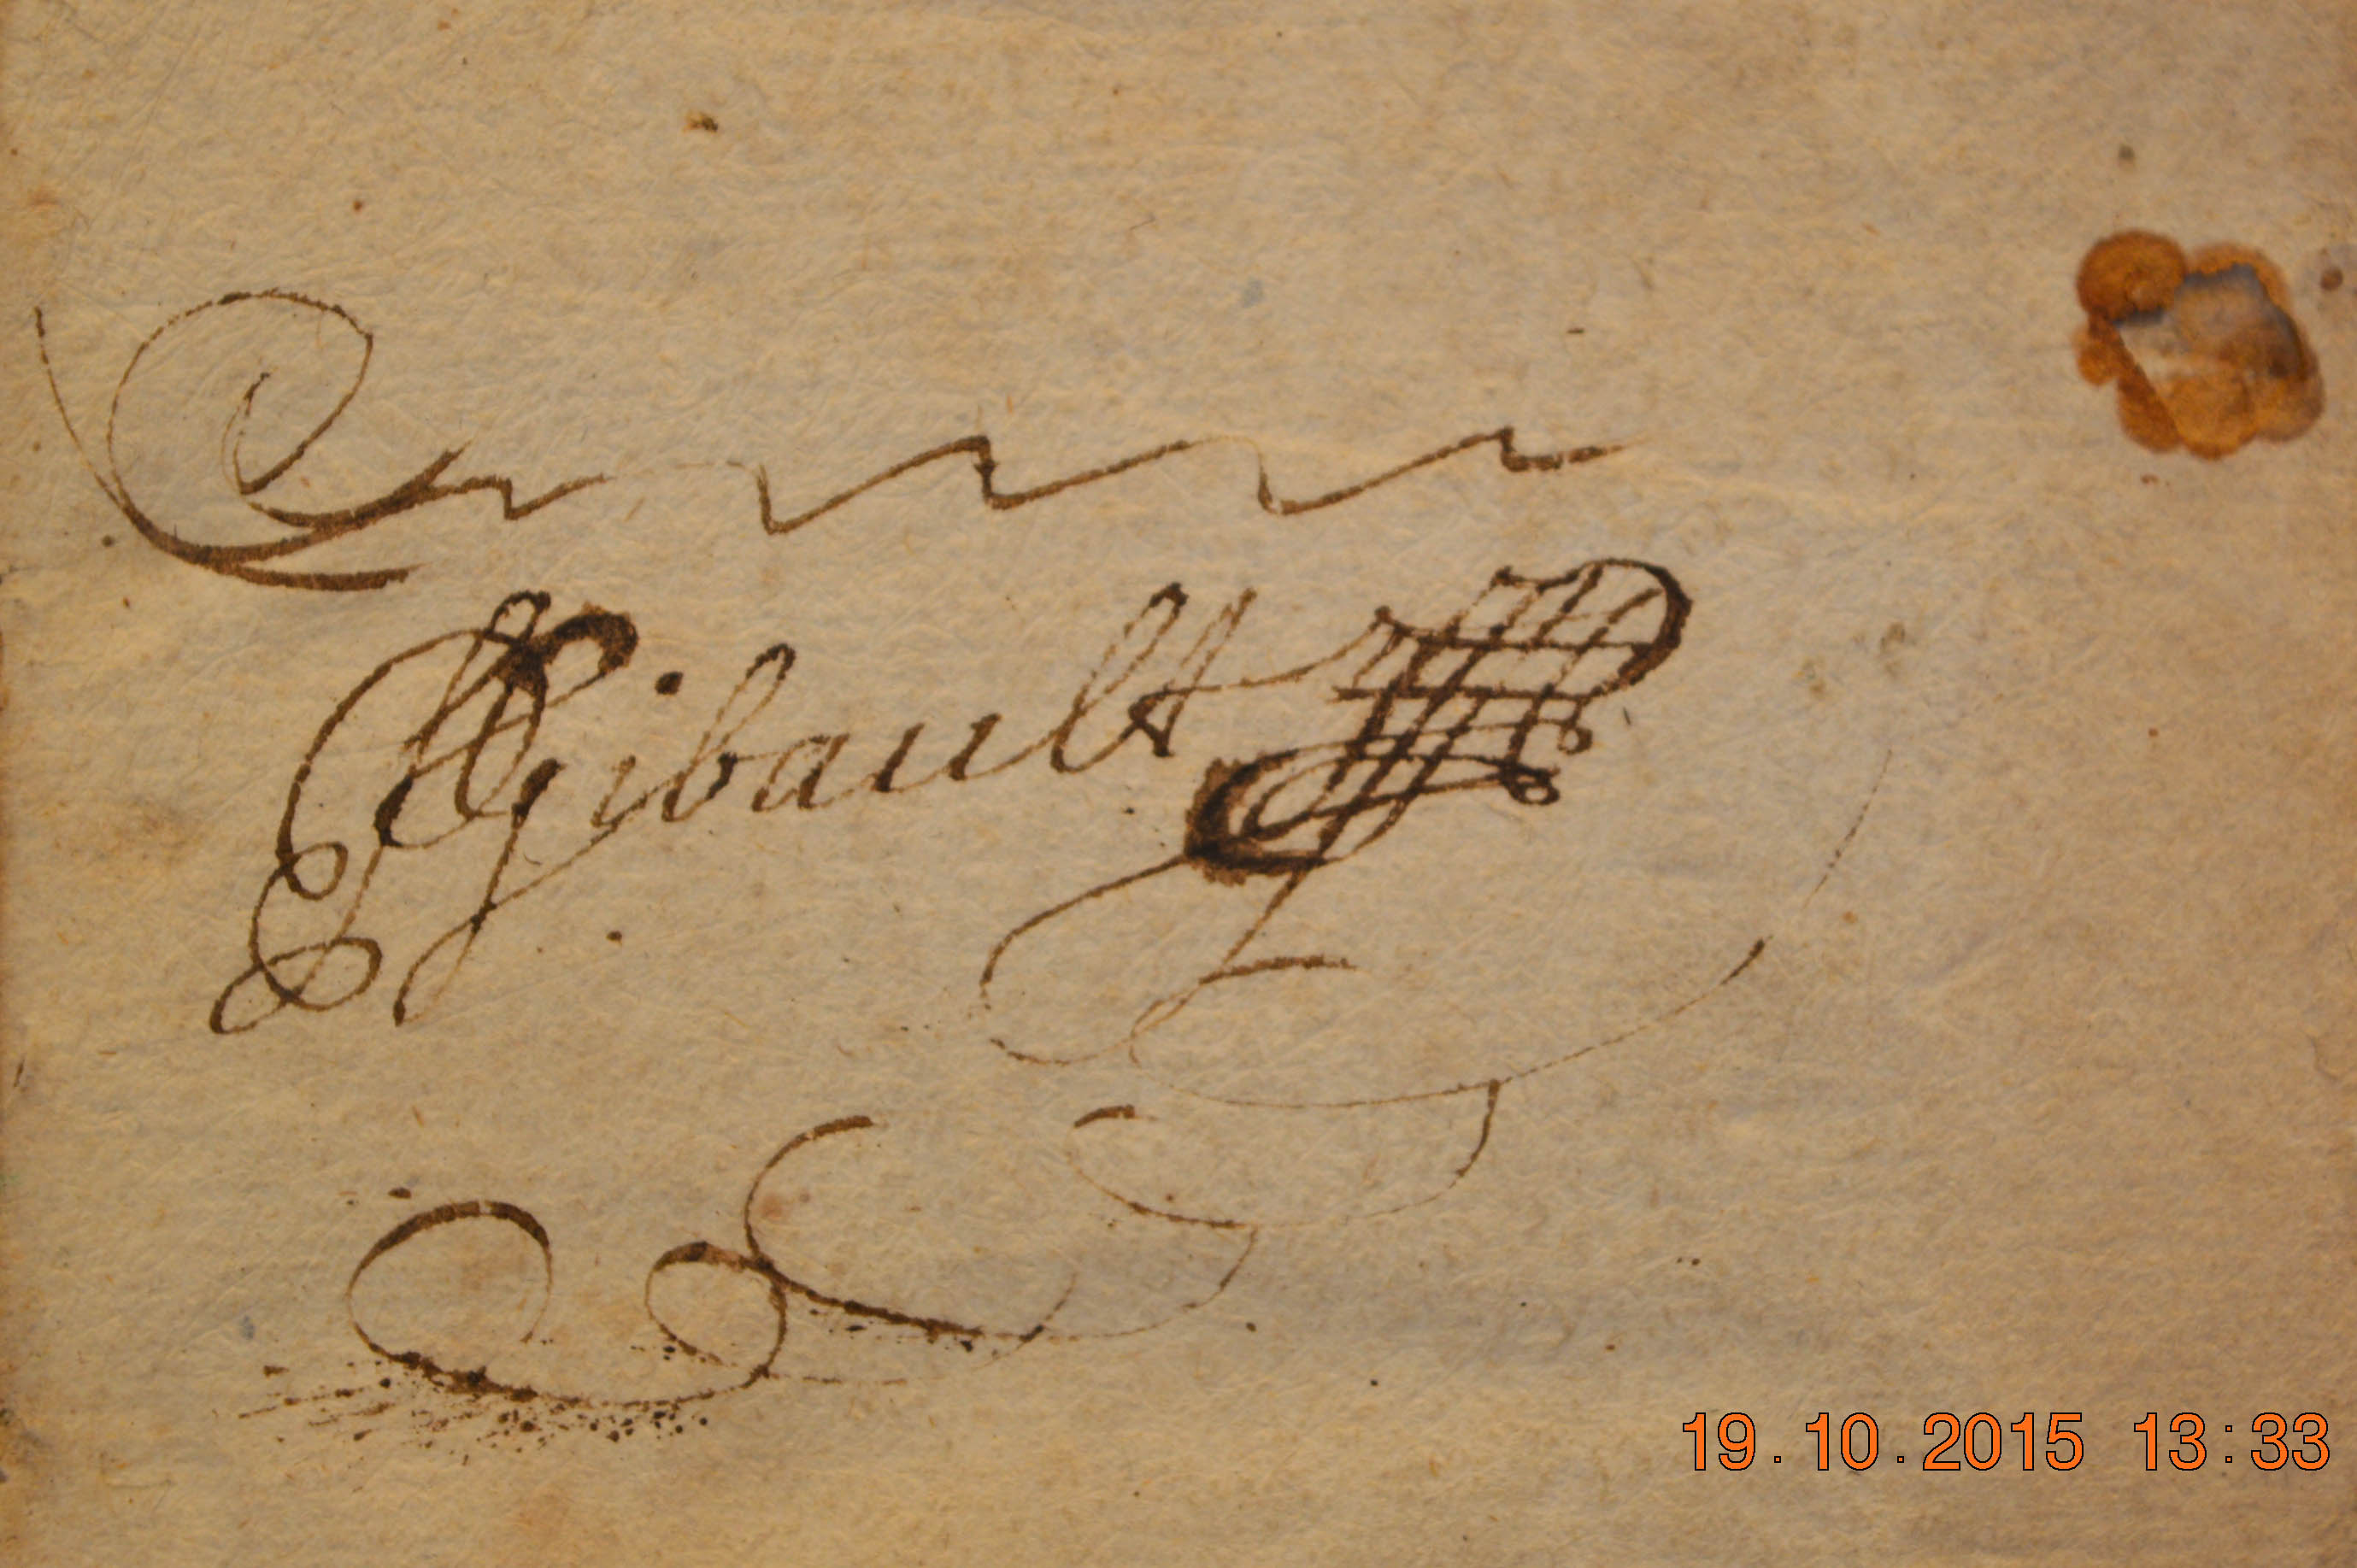 Gibault
19.10.2015 13:33